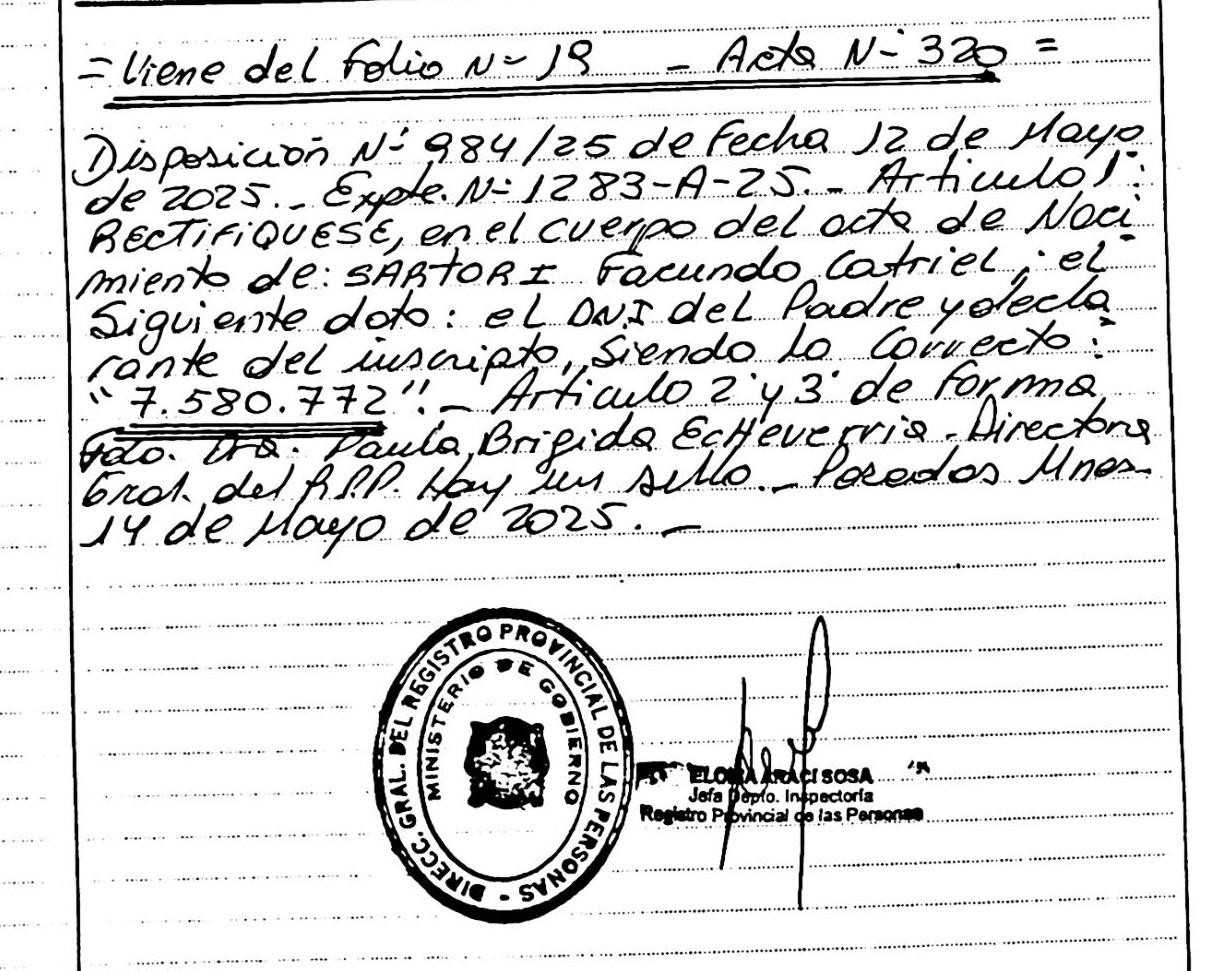 = Viene del Folio N- 19 - Acta N- 320 =
Disposición N- 984/25 de Fecha 12 de Mayo
de 2025.- Expte. N- 1283-A-25.- Articulo 1:
RECTIFIQUESE, en el cuerpo del acta de Naci
miento de: SARTORI Facundo Catriel, el
Siguiente dato: el DNI del Padre y decla
rante del inscripto, Siendo lo Correcto:
"7.580.772".- Articulo 2 y 3 de forma
Fdo. Dra. Paula Brigida Echeverria - Directora
Gral. del R.P.P. Hay un sello.- Posadas Mnes-
14 de Mayo de 2025.-
DIRECC. GRAL. DEL REGISTRO PROVINCIAL DE LAS PERSONAS -
MINISTERIO DE GOBIERNO
ARACI SOSA
Jefa Depto. Inspectoría
Registro Provincial de las Personas